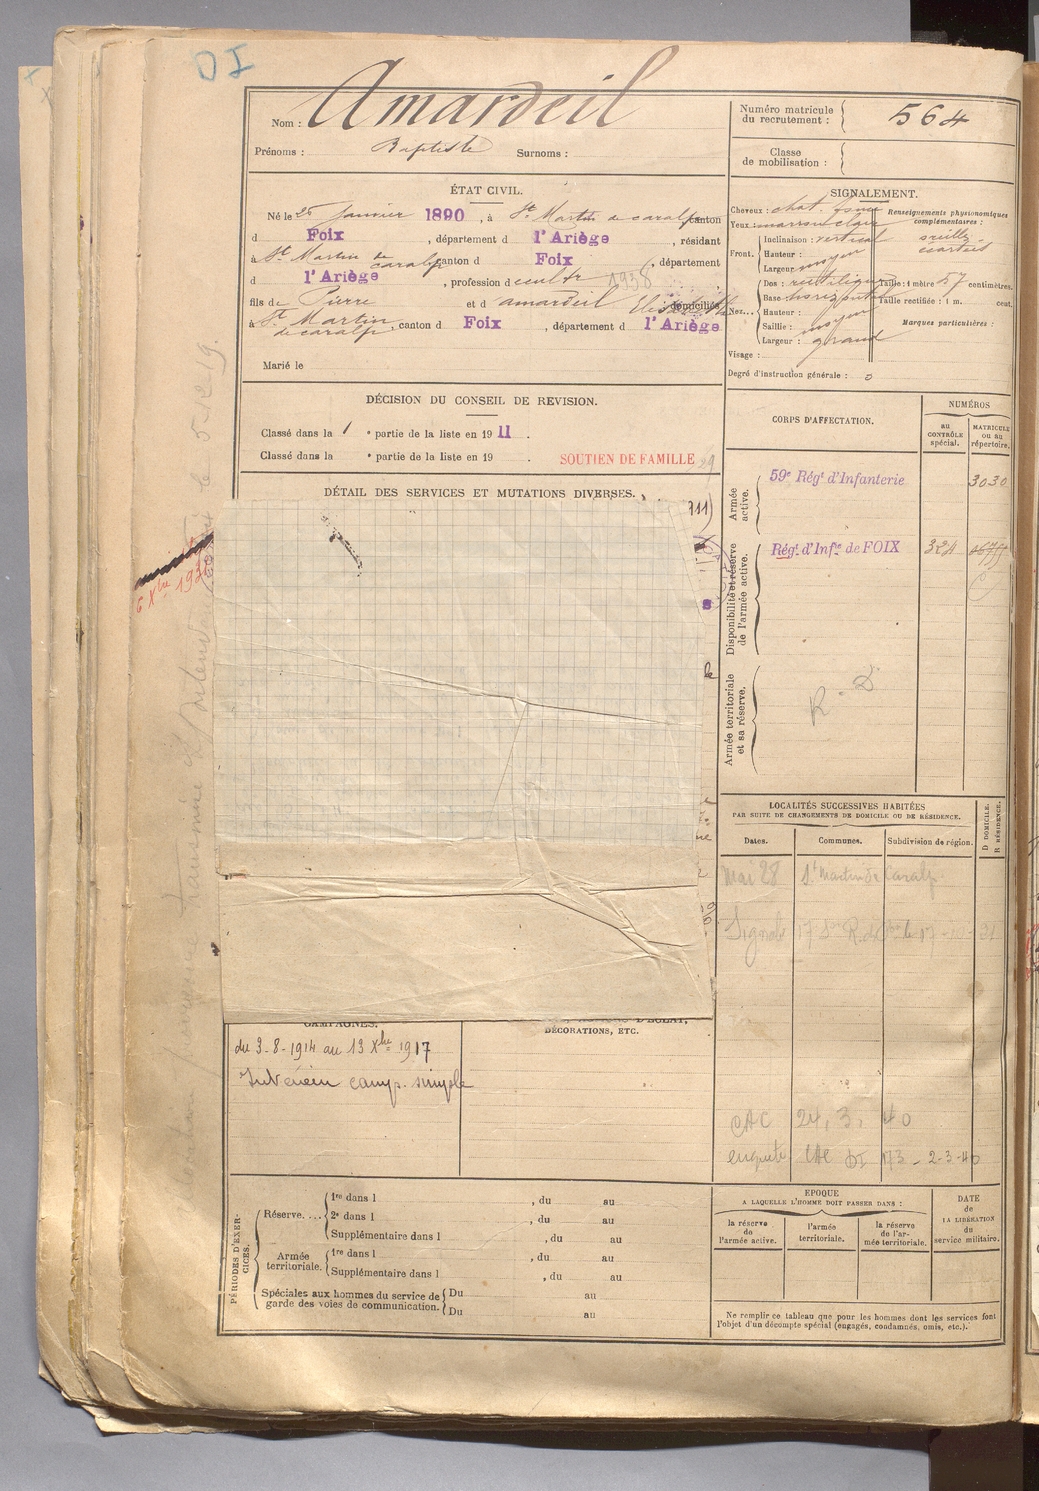 DI
Nom : Amardeil
Prénoms : Baptiste Surnoms :
Numéro matricule du recrutement : 564
Classe de mobilisation :
ÉTAT CIVIL.
Né le 25 Janvier 1890, à St Martin de caralp canton
d Foix, département d l'Ariège, résidant
à St Martin de caralp canton d Foix, département
d l'Ariège, profession d cultr 1938
fils de Pierre et d amardeil Elisabeth domiciliés
à St Martin de caralp, canton d Foix, département d l'Ariège
Marié le
SIGNALEMENT.
Cheveux : chat. foncé
Yeux : marron clair
Front. Inclinaison : vertical
Hauteur :
Largeur moyen
Nez... Dos : rectiligne
Base horizontal
Hauteur :
Saillie : moyen
Largeur : grand
Visage :
Renseignements physionomiques complémentaires :
écartés
Taille : 1 mètre 57 centimètres.
Taille rectifiée : 1 m. cent.
Marques particulières :
Degré d'instruction générale : 0
DÉCISION DU CONSEIL DE REVISION.
Classé dans la 1 e partie de la liste en 1911.
Classé dans la e partie de la liste en 19 . SOUTIEN DE FAMILLE 29
DÉTAIL DES SERVICES ET MUTATIONS DIVERSES.
911)
CORPS D'AFFECTATION.
NUMÉROS
au CONTRÔLE spécial.
MATRICULE ou au répertoire.
Armée active.
59e Régt d'Infanterie 3030
Disponibilité et réserve de l'armée active.
Régt d'Infie de FOIX 324
Armée territoriale et sa réserve.
R. D.
6 Xbre
LOCALITÉS SUCCESSIVES HABITÉES
PAR SUITE DE CHANGEMENTS DE DOMICILE OU DE RÉSIDENCE.
Dates. Communes. Subdivision de région. D DOMICILE. R RÉSIDENCE.
Mai 28 St Martin de Caralp
17-10-31
CAC 24, 3, 40
enquête CAC DI 173 - 2-3-40
CAMPAGNES.
DÉCORATIONS, ETC.
du 3-8-1914 au 13 Xbre 1917
Intérieur camp. simple
PÉRIODES D'EXERCICES.
Réserve....
1re dans l , du au
2e dans l , du au
Supplémentaire dans l , du au
Armée territoriale.
1re dans l , du au
Supplémentaire dans l , du au
Spéciales aux hommes du service de garde des voies de communication.
Du au
Du au
EPOQUE
A LAQUELLE L'HOMME DOIT PASSER DANS :
la réserve de l'armée active.
l'armée territoriale.
la réserve de l'armée territoriale.
DATE de LA LIBÉRATION du service militaire.
Ne remplir ce tableau que pour les hommes dont les services font
l'objet d'un décompte spécial (engagés, condamnés, omis, etc.).